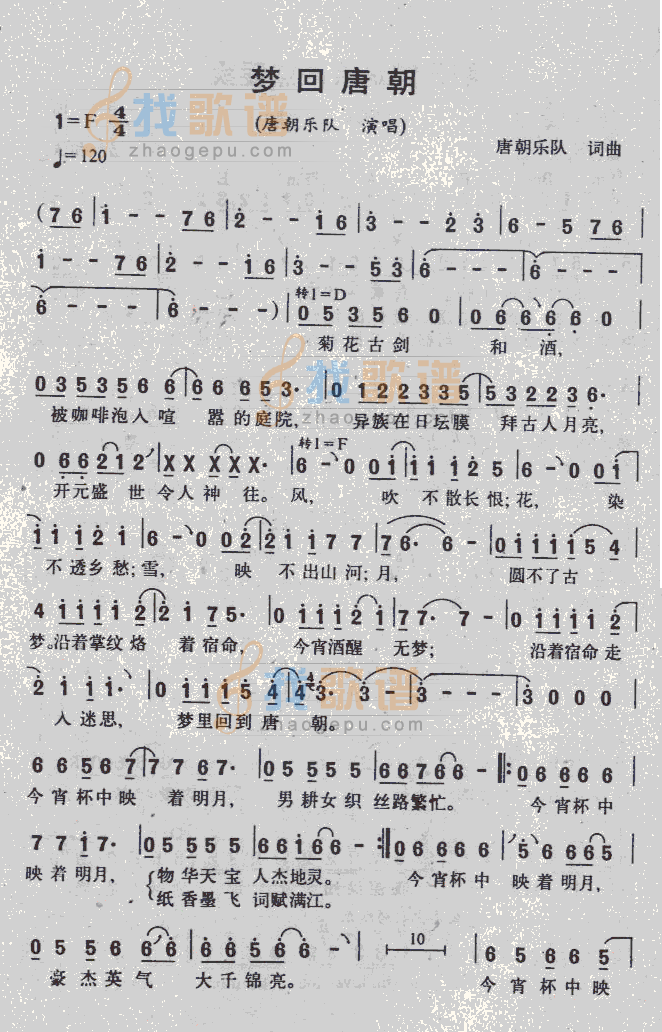 梦回唐朝
1=F 4/4
(唐朝乐队 演唱)
♩=120
唐朝乐队 词曲
找歌谱
zhaogepu.com
(7 6 | 1 - - 7 6 | 2 - - 1 6 | 3 - - 2 3 | 6 - 5 7 6 |
1 - - 7 6 | 2 - - 1 6 | 3 - - 5 3 | 6 - - - | 6 - - - |
转1=D
6 - - - | 6 - - - ) | 0 5 3 5 6 0 | 0 6 6 6 6 0
菊花古剑 和酒,
0 3 5 3 5 6 6 | 6 6 6 5 3· | 0 1 2 2 3 3 5 | 5 3 2 2 3 6·
被咖啡泡入喧 嚣的庭院, 异族在日坛膜 拜古人月亮,
转1=F
0 6 6 2 1 2 | X X X X X· | 6 - 0 0 1 | 1 1 1 2 5 | 6 - 0 0 1
开元盛世令人神往。风, 吹不散长恨;花, 染
1 1 1 2 1 | 6 - 0 0 2 | 2 1 1 7 7 | 7 6· 6 - | 0 1 1 1 1 5 4
不透乡愁;雪, 映不出山河;月, 圆不了古
4 1 1 1 1 2 | 2 1 7 5· | 0 1 1 1 2 1 | 7 7· 7 - | 0 1 1 1 1 2
梦。沿着掌纹烙 着宿命, 今宵酒醒 无梦; 沿着宿命走
2 1 1 1· | 0 1 1 1 5 4 | 4 3· 3 - | 3 - - - | 3 0 0 0
入迷思, 梦里回到唐 朝。
6 6 5 6 7 | 7 7 6 7· | 0 5 5 5 5 | 6 6 7 6 6 - |: 0 6 6 6 6
今宵杯中映 着明月, 男耕女织 丝路繁忙。 今宵杯中
7 7 1 7· | 0 5 5 5 5 | 6 6 1 6 6 - :| 0 6 6 6 6 | 5 6 6 6 5
映着明月, 物华天宝 人杰地灵。 今宵杯中 映着明月,
纸香墨飞 词赋满江。
0 5 5 6 6 6 | 6 6 5 6 6 - | 10 | 6 5 6 6 5
豪杰英气 大千锦亮。 今宵杯中映